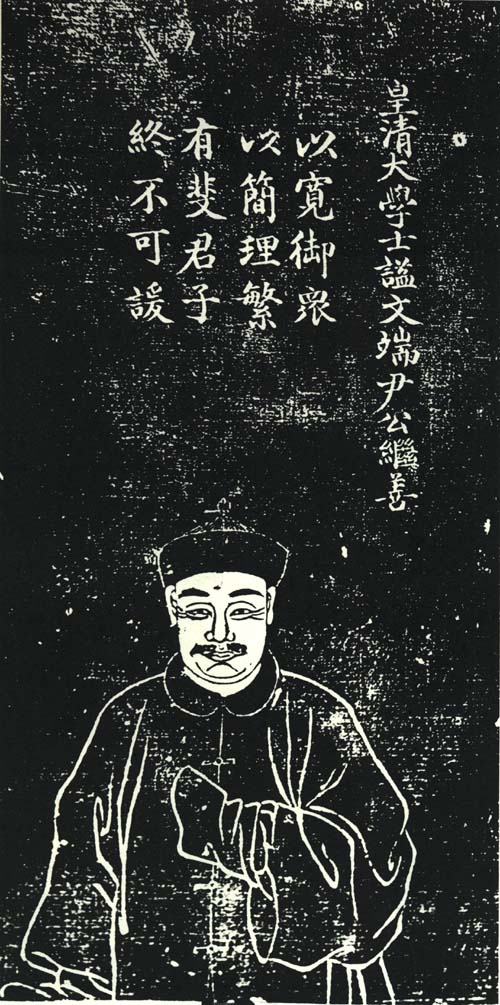 皇清大學士謚文端尹公繼善
以寬御眾
以簡理繁
有斐君子
終不可諼